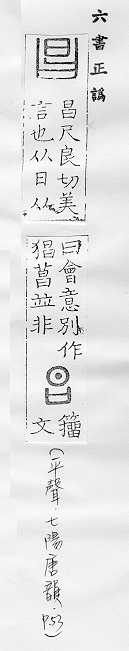 六書正譌
昌尺良切美
言也从日从
曰會意別作
猖菖竝非
籀
文
(平聲.七陽唐韻.P53)